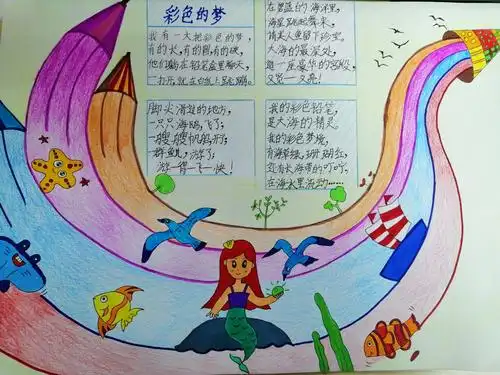 彩色的梦
我有一大把彩色的梦，
有的长，有的圆，有的硬，
他们躺在铅笔盒里聊天，
一打开，就在白纸上跳蹦。
脚尖滑过的地方，
一只只海鸥，飞了；
一艘艘帆船，行；
一群鱼，游了；
游得飞快！
在碧蓝的海洋里，
海星跳起舞来，
精美人鱼留下珍宝，
大海的最深处，
是一座豪华的宫殿，
又宽一又亮！
我的彩色铅笔，
是大海的精灵。
我的彩色梦境，
有海草绿，珊瑚红，
还有长海带的叮咛，
在海水里流动……